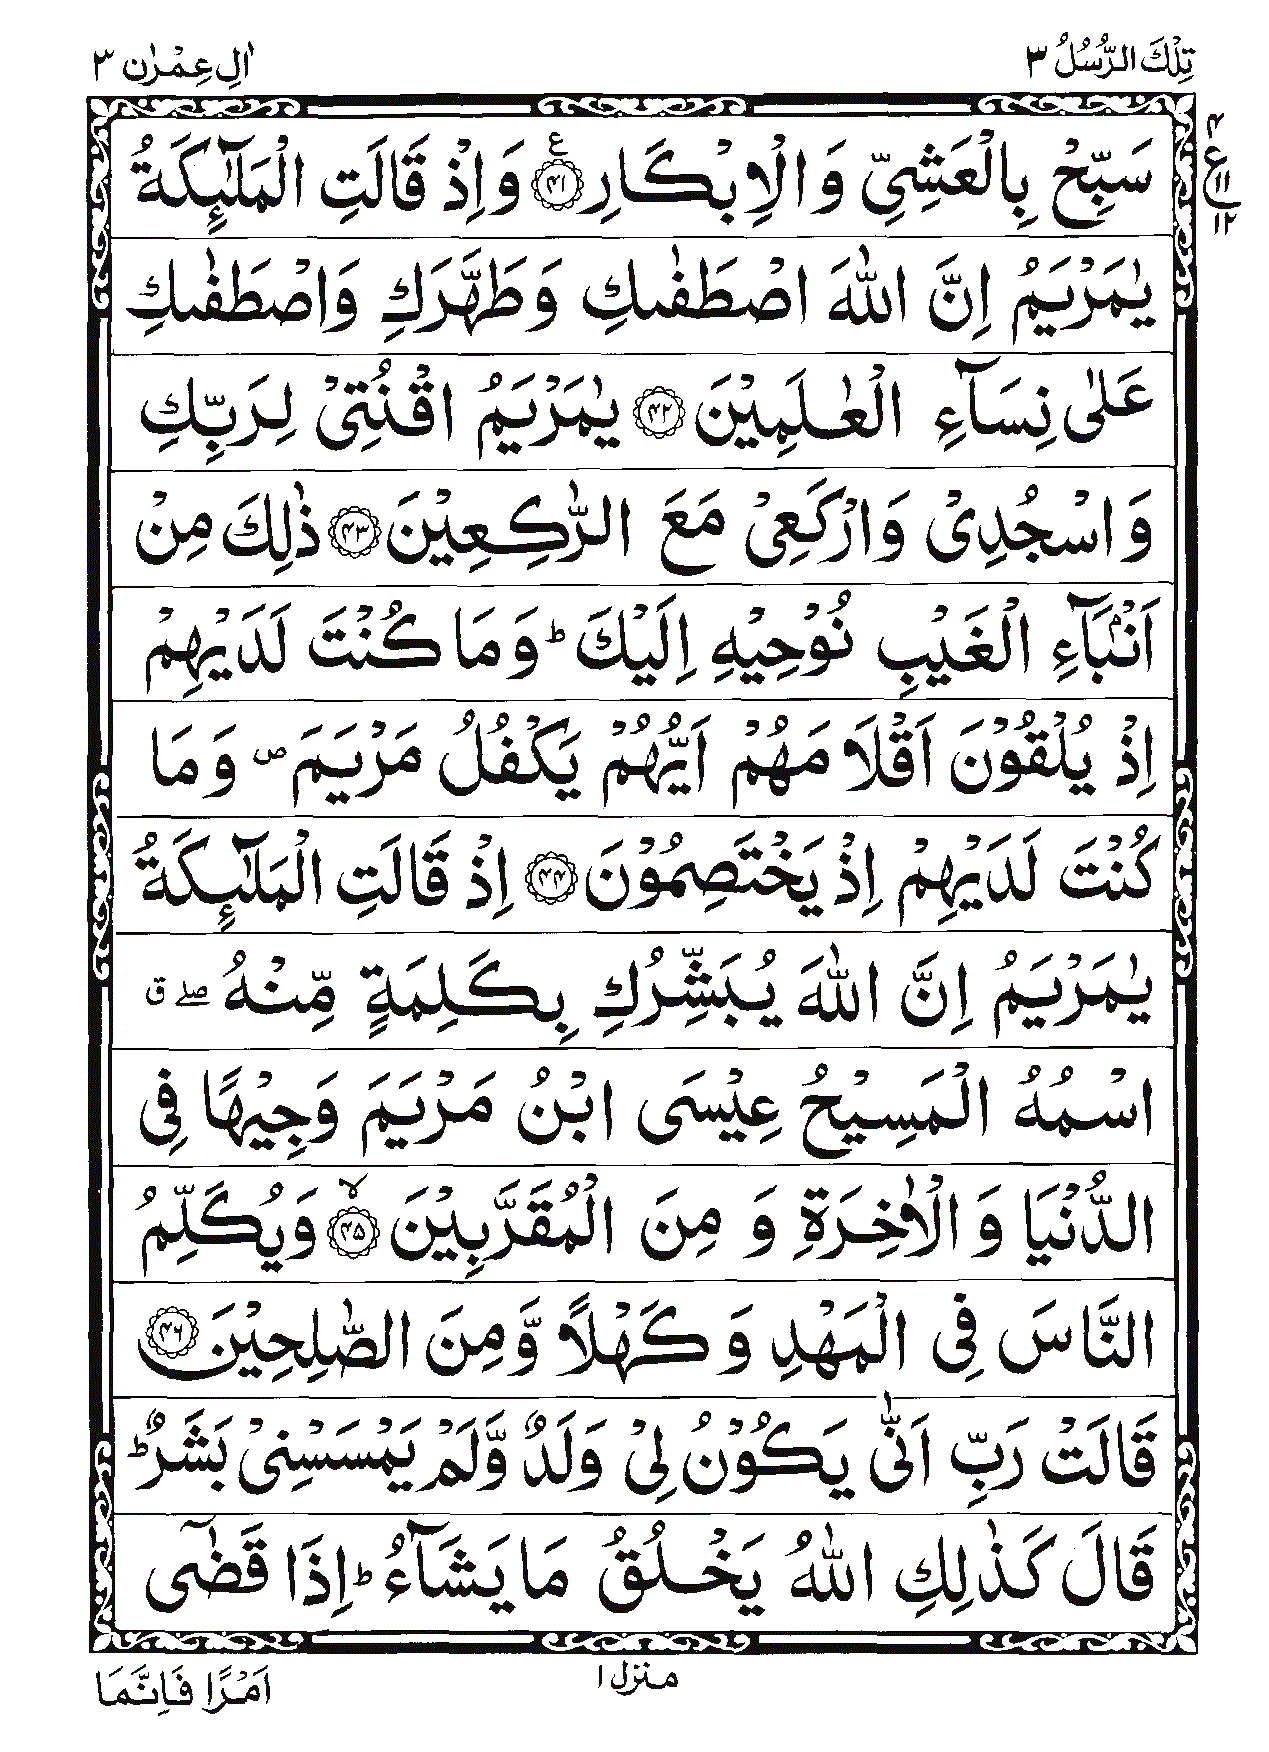 تِلْكَ الرُّسُلُ ٣
اٰلِ عِمْرٰن ٣
سَبِّحْ بِالْعَشِيِّ وَ الْاِبْكَارِ ﴿۴۱﴾ ع وَ اِذْ قَالَتِ الْمَلٰٓئِكَةُ
۴ ع ۱۱ ۱۲
يٰمَرْيَمُ اِنَّ اللّٰهَ اصْطَفٰىكِ وَ طَهَّرَكِ وَاصْطَفٰىكِ
عَلٰى نِسَآءِ الْعٰلَمِيْنَ ﴿۴۲﴾ يٰمَرْيَمُ اقْنُتِيْ لِرَبِّكِ
وَ اسْجُدِيْ وَارْكَعِيْ مَعَ الرّٰكِعِيْنَ ﴿۴۳﴾ ذٰلِكَ مِنْ
اَنْۢبَآءِ الْغَيْبِ نُوْحِيْهِ اِلَيْكَ ؕ وَ مَا كُنْتَ لَدَيْهِمْ
اِذْ يُلْقُوْنَ اَقْلَامَهُمْ اَيُّهُمْ يَكْفُلُ مَرْيَمَ ۪ وَ مَا
كُنْتَ لَدَيْهِمْ اِذْ يَخْتَصِمُوْنَ ﴿۴۴﴾ اِذْ قَالَتِ الْمَلٰٓئِكَةُ
يٰمَرْيَمُ اِنَّ اللّٰهَ يُبَشِّرُكِ بِكَلِمَةٍ مِّنْهُ ۖ ق
اسْمُهُ الْمَسِيْحُ عِيْسَى ابْنُ مَرْيَمَ وَجِيْهًا فِي
الدُّنْيَا وَ الْاٰخِرَةِ وَ مِنَ الْمُقَرَّبِيْنَ ﴿۴۵﴾ ۙ وَيُكَلِّمُ
النَّاسَ فِي الْمَهْدِ وَ كَهْلًا وَّ مِنَ الصّٰلِحِيْنَ ﴿۴۶﴾
قَالَتْ رَبِّ اَنّٰى يَكُوْنُ لِيْ وَلَدٌ وَّ لَمْ يَمْسَسْنِيْ بَشَرٌ ؕ
قَالَ كَذٰلِكِ اللّٰهُ يَخْلُقُ مَا يَشَآءُ ؕ اِذَا قَضٰٓى
منزل ١
اَمْرًا فَاِنَّمَا